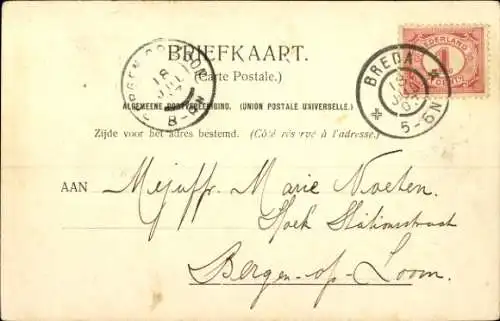 BRIEFKAART.
(Carte Postale.)
ALGEMEENE POSTVEREENIGING. (UNION POSTALE UNIVERSELLE.)
Zijde voor het adres bestemd. (Côté réservé à l'adresse.)
BREDA
5-6N
8-9N
NEDERLAND
1
CENT
AAN Mejuffr. Marie Noeten.
Hoek Stationsstraat
Bergen-op-Zoom.